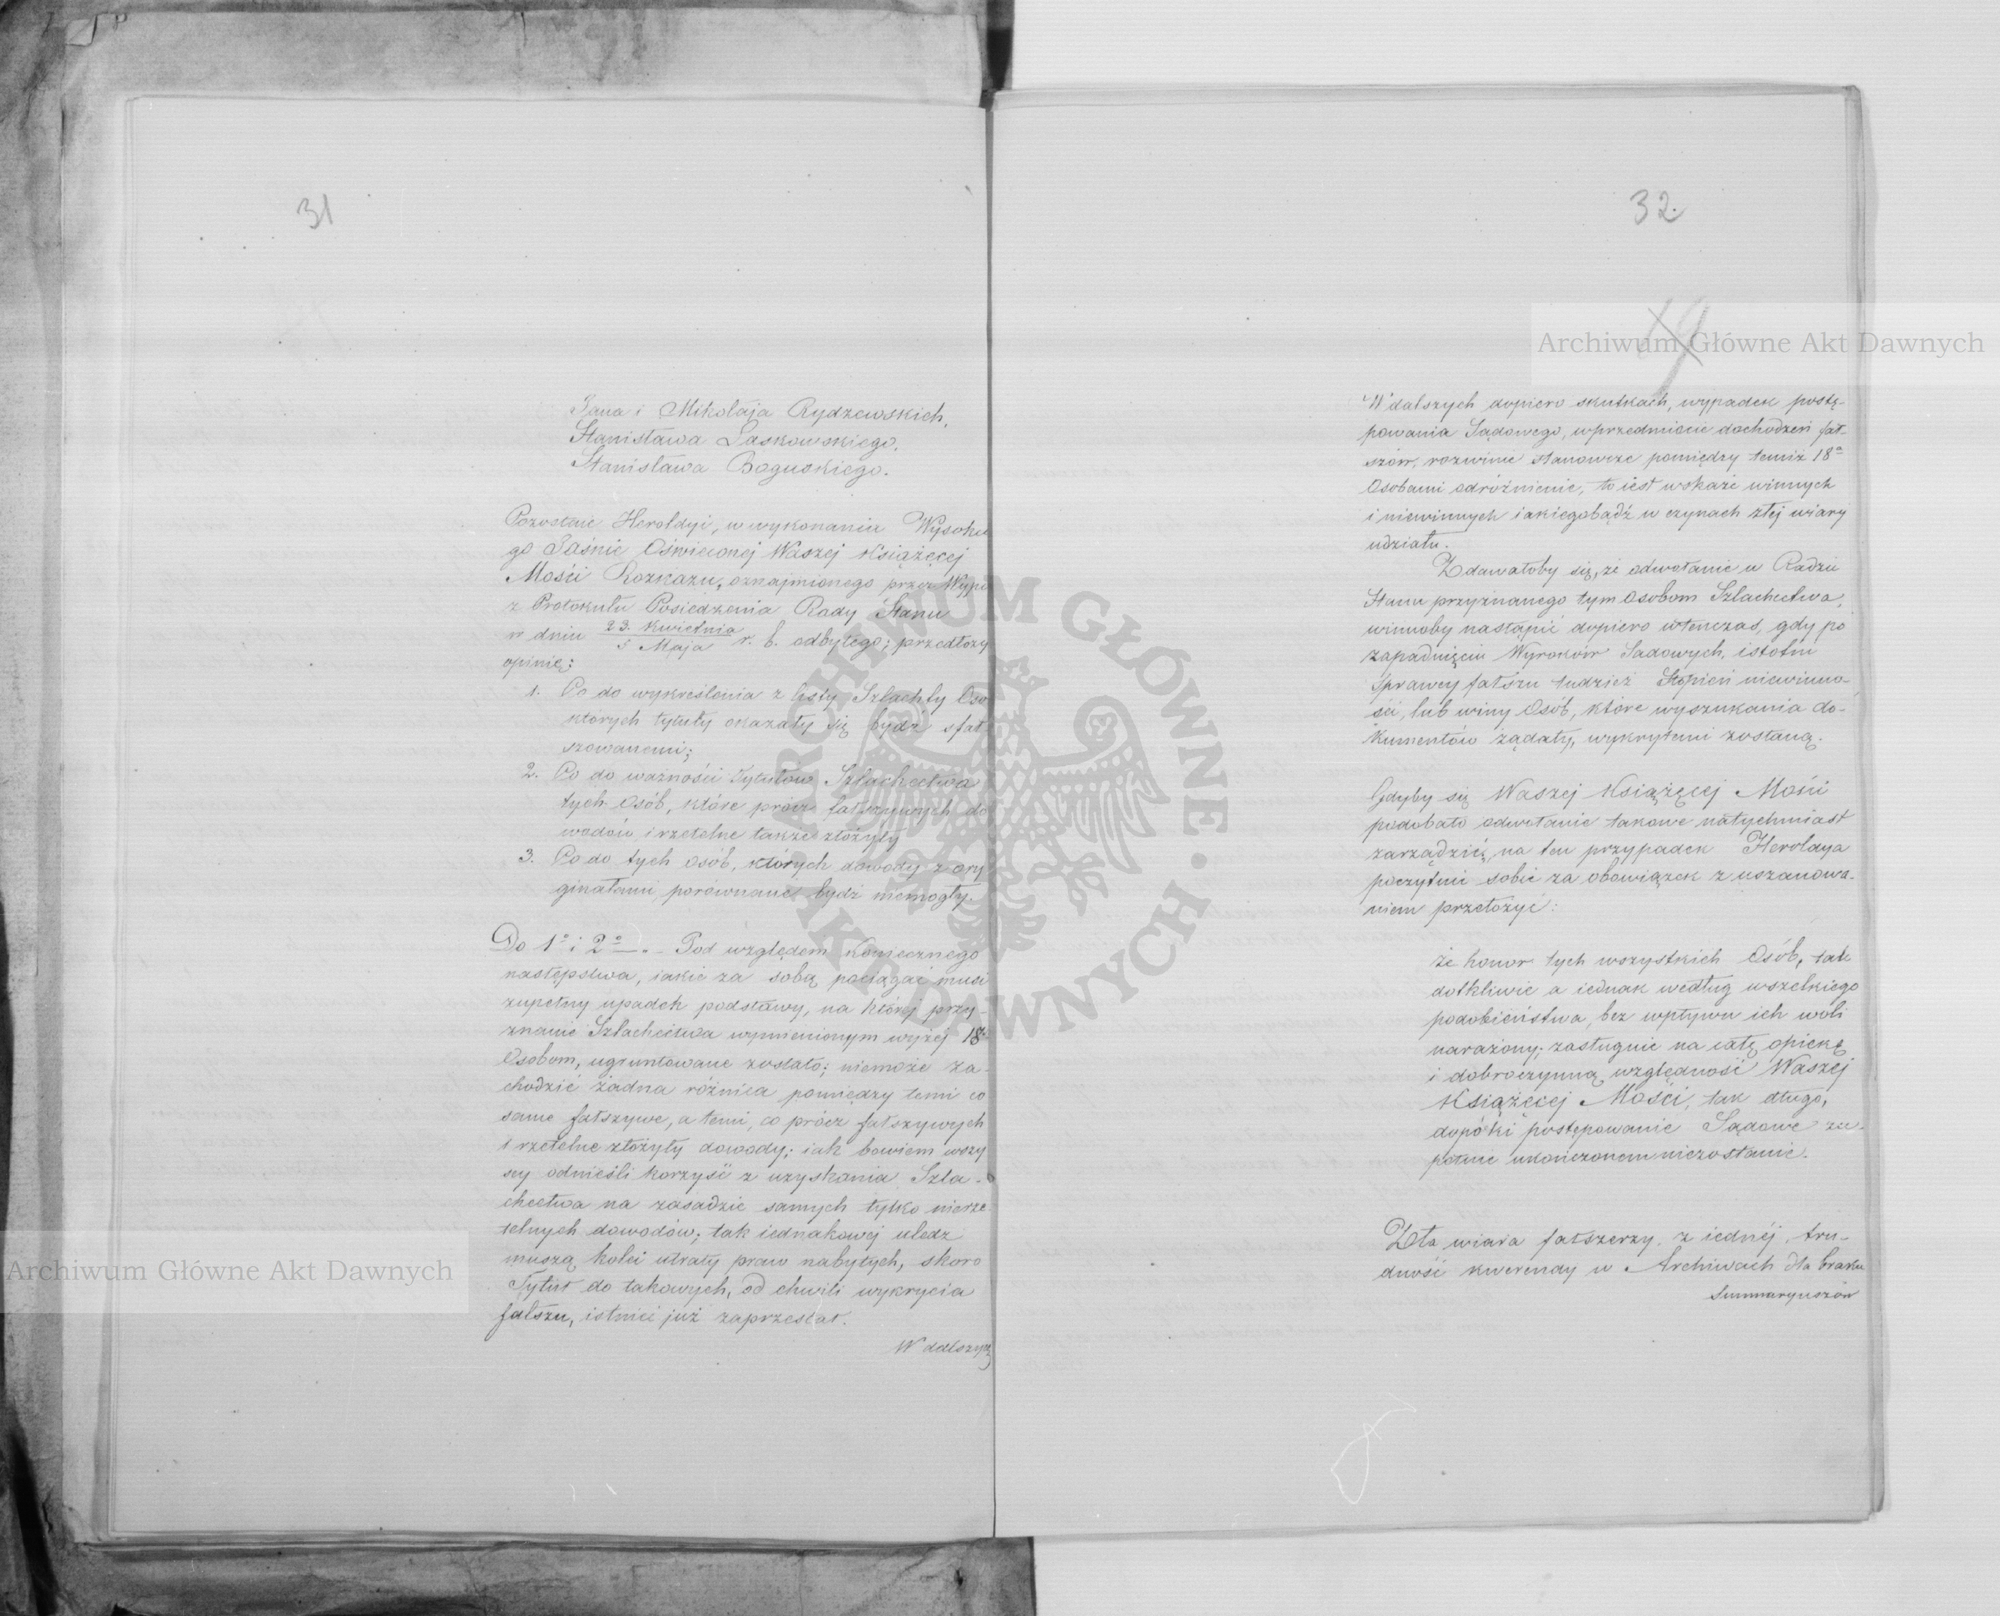 31
Jana i Mikołaja Rydzewskich,
Stanisława Laskowskiego,
Stanisława Boguskiego.
Pozostaie Heroldyi, w wykonaniu Wysokie
go Jaśnie Oświeconej Waszej Książęcej
Mości Rozkazu, oznajmionego przez Wypis
z Protokułu Posiedzenia Rady Stanu
w dniu 23. Kwietnia / 5 Maja r. b. odbytego; przedłoży
opinię:
1. Co do wykreślenia z listy Szlachty Osó
których tytuły okazały się bydź sfał
szowanemi;
2. Co do ważności Tytułów Szlachectwa
tych Osób, które prócz fałszywych do
wodów i rzetelne także złożyły
3. Co do tych osób, których dowody z ory
ginałami porównane bydź niemogły.
Do 1º i 2º. – Pod względem koniecznego
następstwa, iakie za sobą pociągać musi
zupełny upadek podstawy, na której przy-
znanie Szlachectwa wymienionym wyżej 18u
Osobom, ugruntowane zostało; niemoże za-
chodzić żadna różnica pomiędzy temi co
same fałszywe, a temi, co prócz fałszywych
i rzetelne złożyły dowody; iak bowiem wszy
scy odnieśli korzyść z uzyskania Szla-
chectwa na zasadzie samych tylko nierze
telnych dowodów; tak iednakowej uledz
muszą kolei utraty praw nabytych, skoro
Tytuł do takowych, od chwili wykrycia
fałszu, istnieć już zaprzestał.
W dalszych
32.
19
W dalszych dopiero skutkach, wypadek postę-
powania Sądowego, w przedmiocie dochodzeń fał-
szów, rozwinie stanowcze pomiędzy temiż 18a
Osobami odróżnienie, to iest wskaże winnych
i niewinnych iakiegobądź w czynach złej wiary
udziału.
Zdawałoby się, że odwołanie w Radzie
Stanu przyznanego tym Osobom Szlachectwa,
winnoby nastąpić dopiero wtenczas, gdy po
zapadnięciu Wyroków Sadowych, istotni
sprawcy fałszu tudzież Stopień niewinno-
ści, lub winy Osób, które wyszukania do-
kumentów żądały, wykrytemi zostaną.
Gdyby się Waszej Książęcej Mości
podobało odwołanie takowe natychmiast
zarządzić, na ten przypadek Heroldya
poczytuie sobie za obowiązek z uszanowa-
niem przełożyć:
że honor tych wszystkich Osób, tak
dotkliwie a iednak według wszelkiego
podobieństwa, bez wpływu ich woli
narażony; zasługuie na całą opiekę
i dobroczynną względność Waszej
Książęcej Mości, tak długo,
dopóki postępowanie Sądowe zu-
pełnie ukończonem niezostanie.
Zła wiara fałszerzy z iednéj, tru-
dność kwerendy w Archiwach dla braku
Summaryuszów
Archiwum Główne Akt Dawnych
Archiwum Główne Akt Dawnych
ARCHIWUM GŁÓWNE · AKT DAWNYCH ·